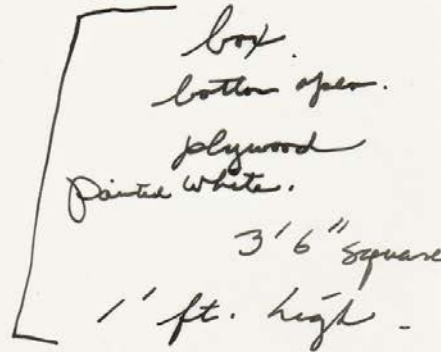 box.
bottom open.
plywood
painted white.
3'6" square
1' ft. high.